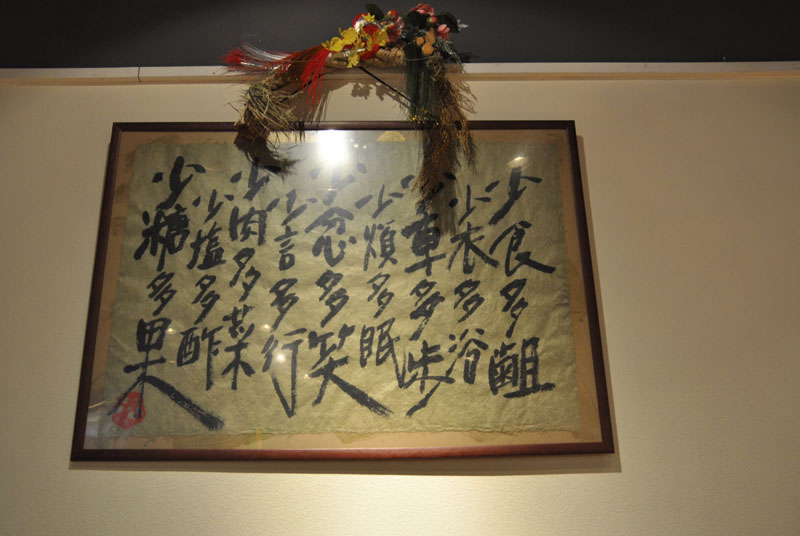 少食多齟
少衣多浴
少車多歩
少煩多眠
少忿多笑
少言多行
少肉多菜
少塩多酢
少糖多果